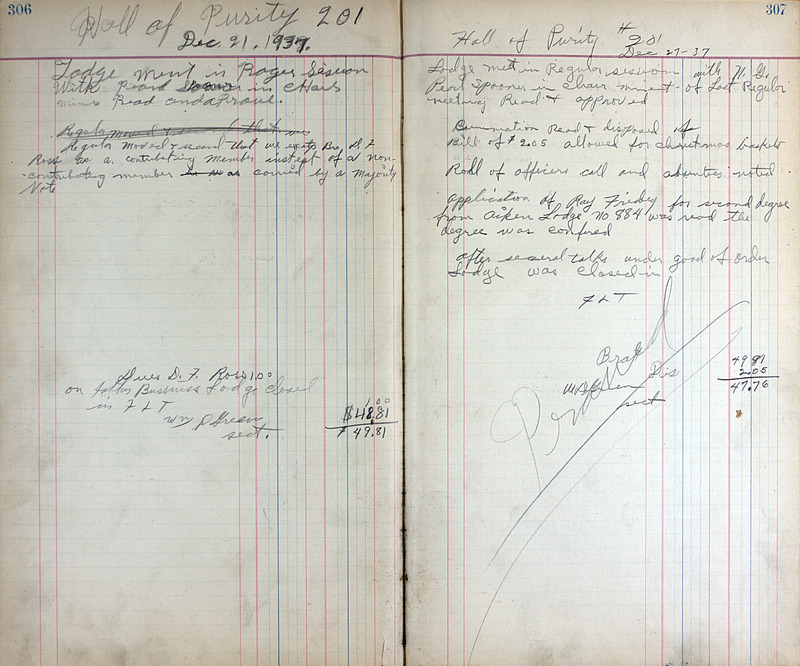 306
Hall of Purity 201
Dec. 21. 1937.
Lodge ment in Rager Session
With Peard in Chair
mins Read and aProve.
Regular moved & second that we
Regular Moved & second that we Bro, D. F
Ross as a contributing member insted of a non-
contributing member carried by a Majority
Vote
Dues D. F. Ross 1.00
on Bussiness Lodge closed
in F L T
Wm P Green
sect.
1.00
$48.81
$ 49.81
307
Hall of Purity #201
Dec 27-37
Lodge mett in Regular session with N. G.
Pearl Spooner in chair minut of Last Regular
meeting Read & approved
Read & disposed of
Bill of $2.05 allowed for christmas basket
Roll of officers call and absentees noted
application of Ray Friday for second degree
from Aiken Lodge No 884 was read the
degree was confured
after several talks under good of order
Lodge was closed in
F L T
sect
49 81
2.05
47.76